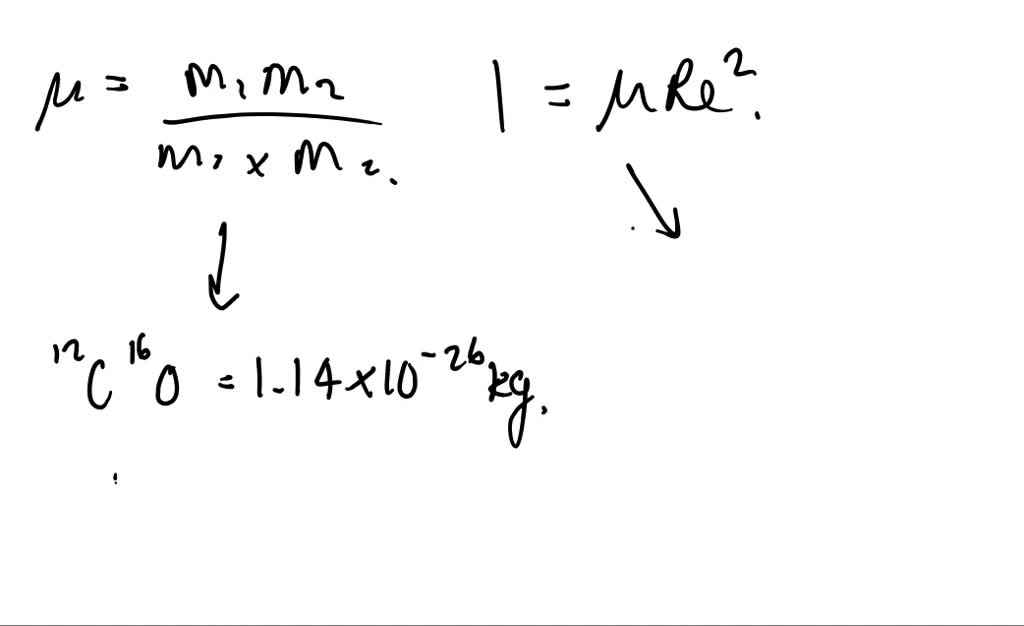 μ = m₁m₂ / m₁ × m₂. I = μRe².
¹²C¹⁶O = 1.14×10⁻²⁶kg.